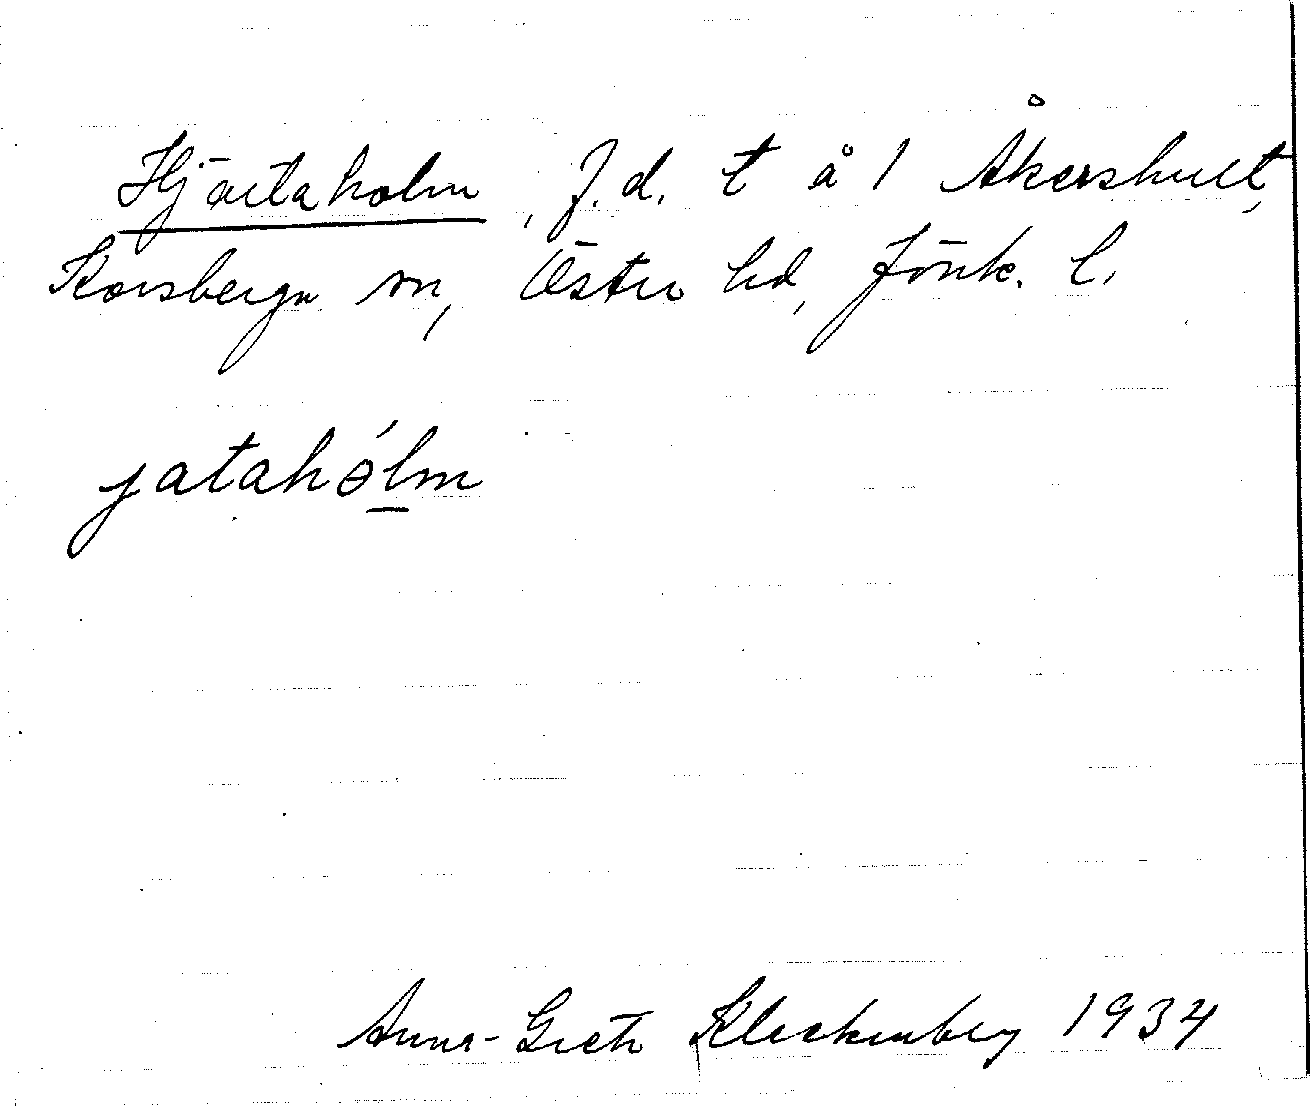 Hjärtaholm, f.d. t å 1 Åkershult,
Korsberga sn, Östra hd, Jönk. l.
jatahólm
Anna-Greta Kleckenberg 1934